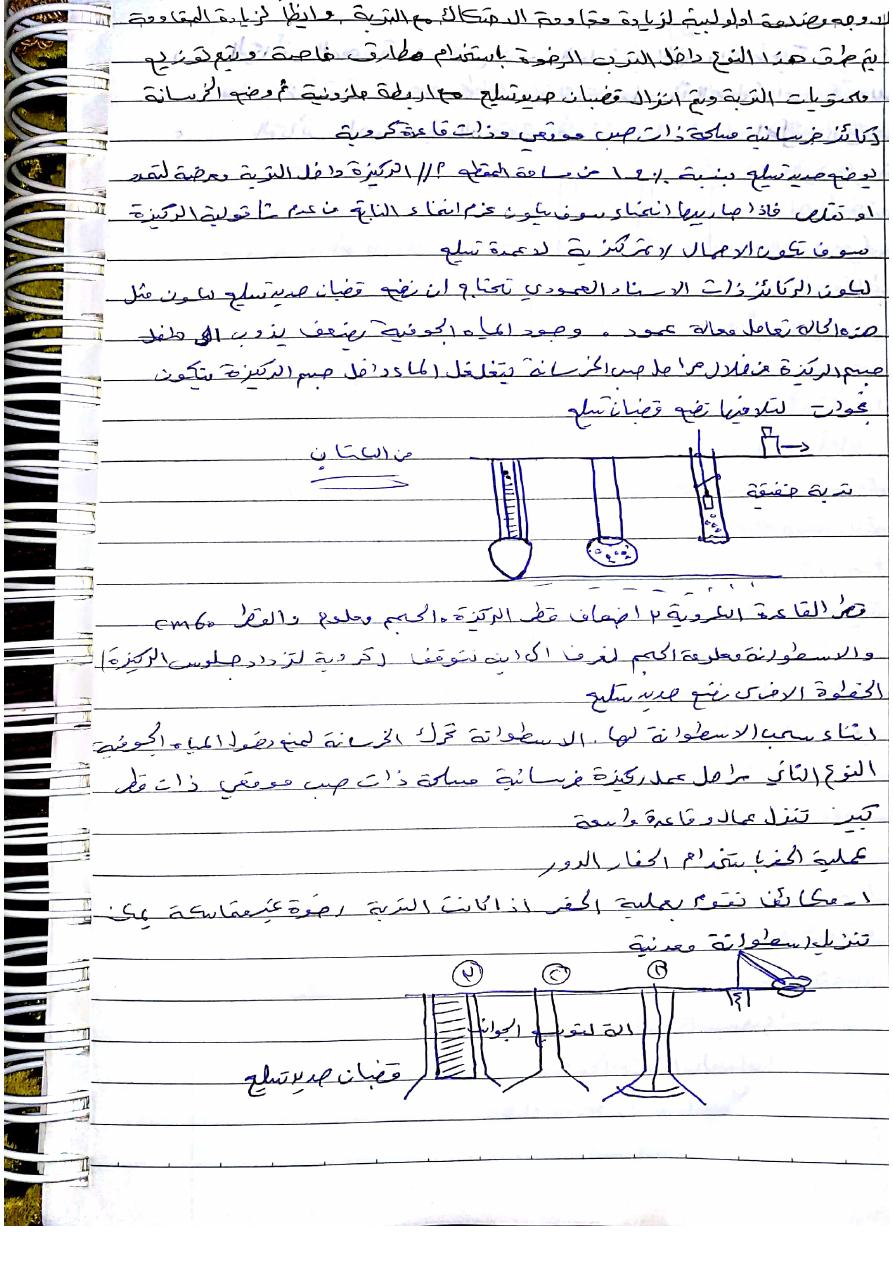 الاوجه ومضلعة او لولبية لزيادة مقاومة الاحتكاك مع التربة وايظاً لزيادة المقاومة
يتم طرق هذا النوع داخل الترب الرخوة باستخدام مطارق خاصة ويتم توزيع
محتويات التربة ويتم انزال قضبان حديد تسليح مع اربطة حلزونية ثم وضع الخرسانة
ركائز خرسانية مسلحة ذات صب موقعي وذات قاعدة كروية
يوضع حديد تسليح بنسبة من مساحة المقطع // الركيزة داخل التربة معرضة لتمدد
او تقلص فاذا صار بيها انحناء سوف يتكون عزم انحناء الناتج من عدم شاقولية الركيزة
سوف تكون الاحمال لامتركزية لاعمدة تسليح
لتكون الركائز ذات الاسناد العمودي تحتاج ان نضع قضبان حديد تسليح لتكون مثل
هذه الحالة تعامل معاملة عمود . وجود المياه الجوفية يضعف يذوب الى داخل
جسم الركيزة من خلال مراحل صب الخرسانة يتغلغل الماء داخل جسم الركيزة يتكون
فجوات لتلافيها نضع قضبان تسليح
تربة حقيقية
قطر القاعدة الكروية ٣ اضعاف قطر الركيزة. الحجم معلوم والقطر 60 cm
والاسطوانة معلومة الحجم لنعرف الى اين نتوقف (كروية لتزداد جلوس الركيزة)
الخطوة الاخرى نضع حديد تسليح
اثناء سحب الاسطوانة لها. الاسطوانة تحرك الخرسانة لمنع دخول المياه الجوفية
النوع الثاني مراحل عمل ركيزة خرسانية مسلحة ذات صب موقعي ذات قطر
كبير تنزل عمال وقاعدة واسعة
عملية الحفر باستخدام الحفار الدور
١- مكائن تقوم بعملية الحفر اذا كانت التربة رخوة غير متماسكة يمكن
تنزيل اسطوانة معدنية
١ ٢ ٣
الة لتوسيع الجوانب
قضبان حديد تسليح